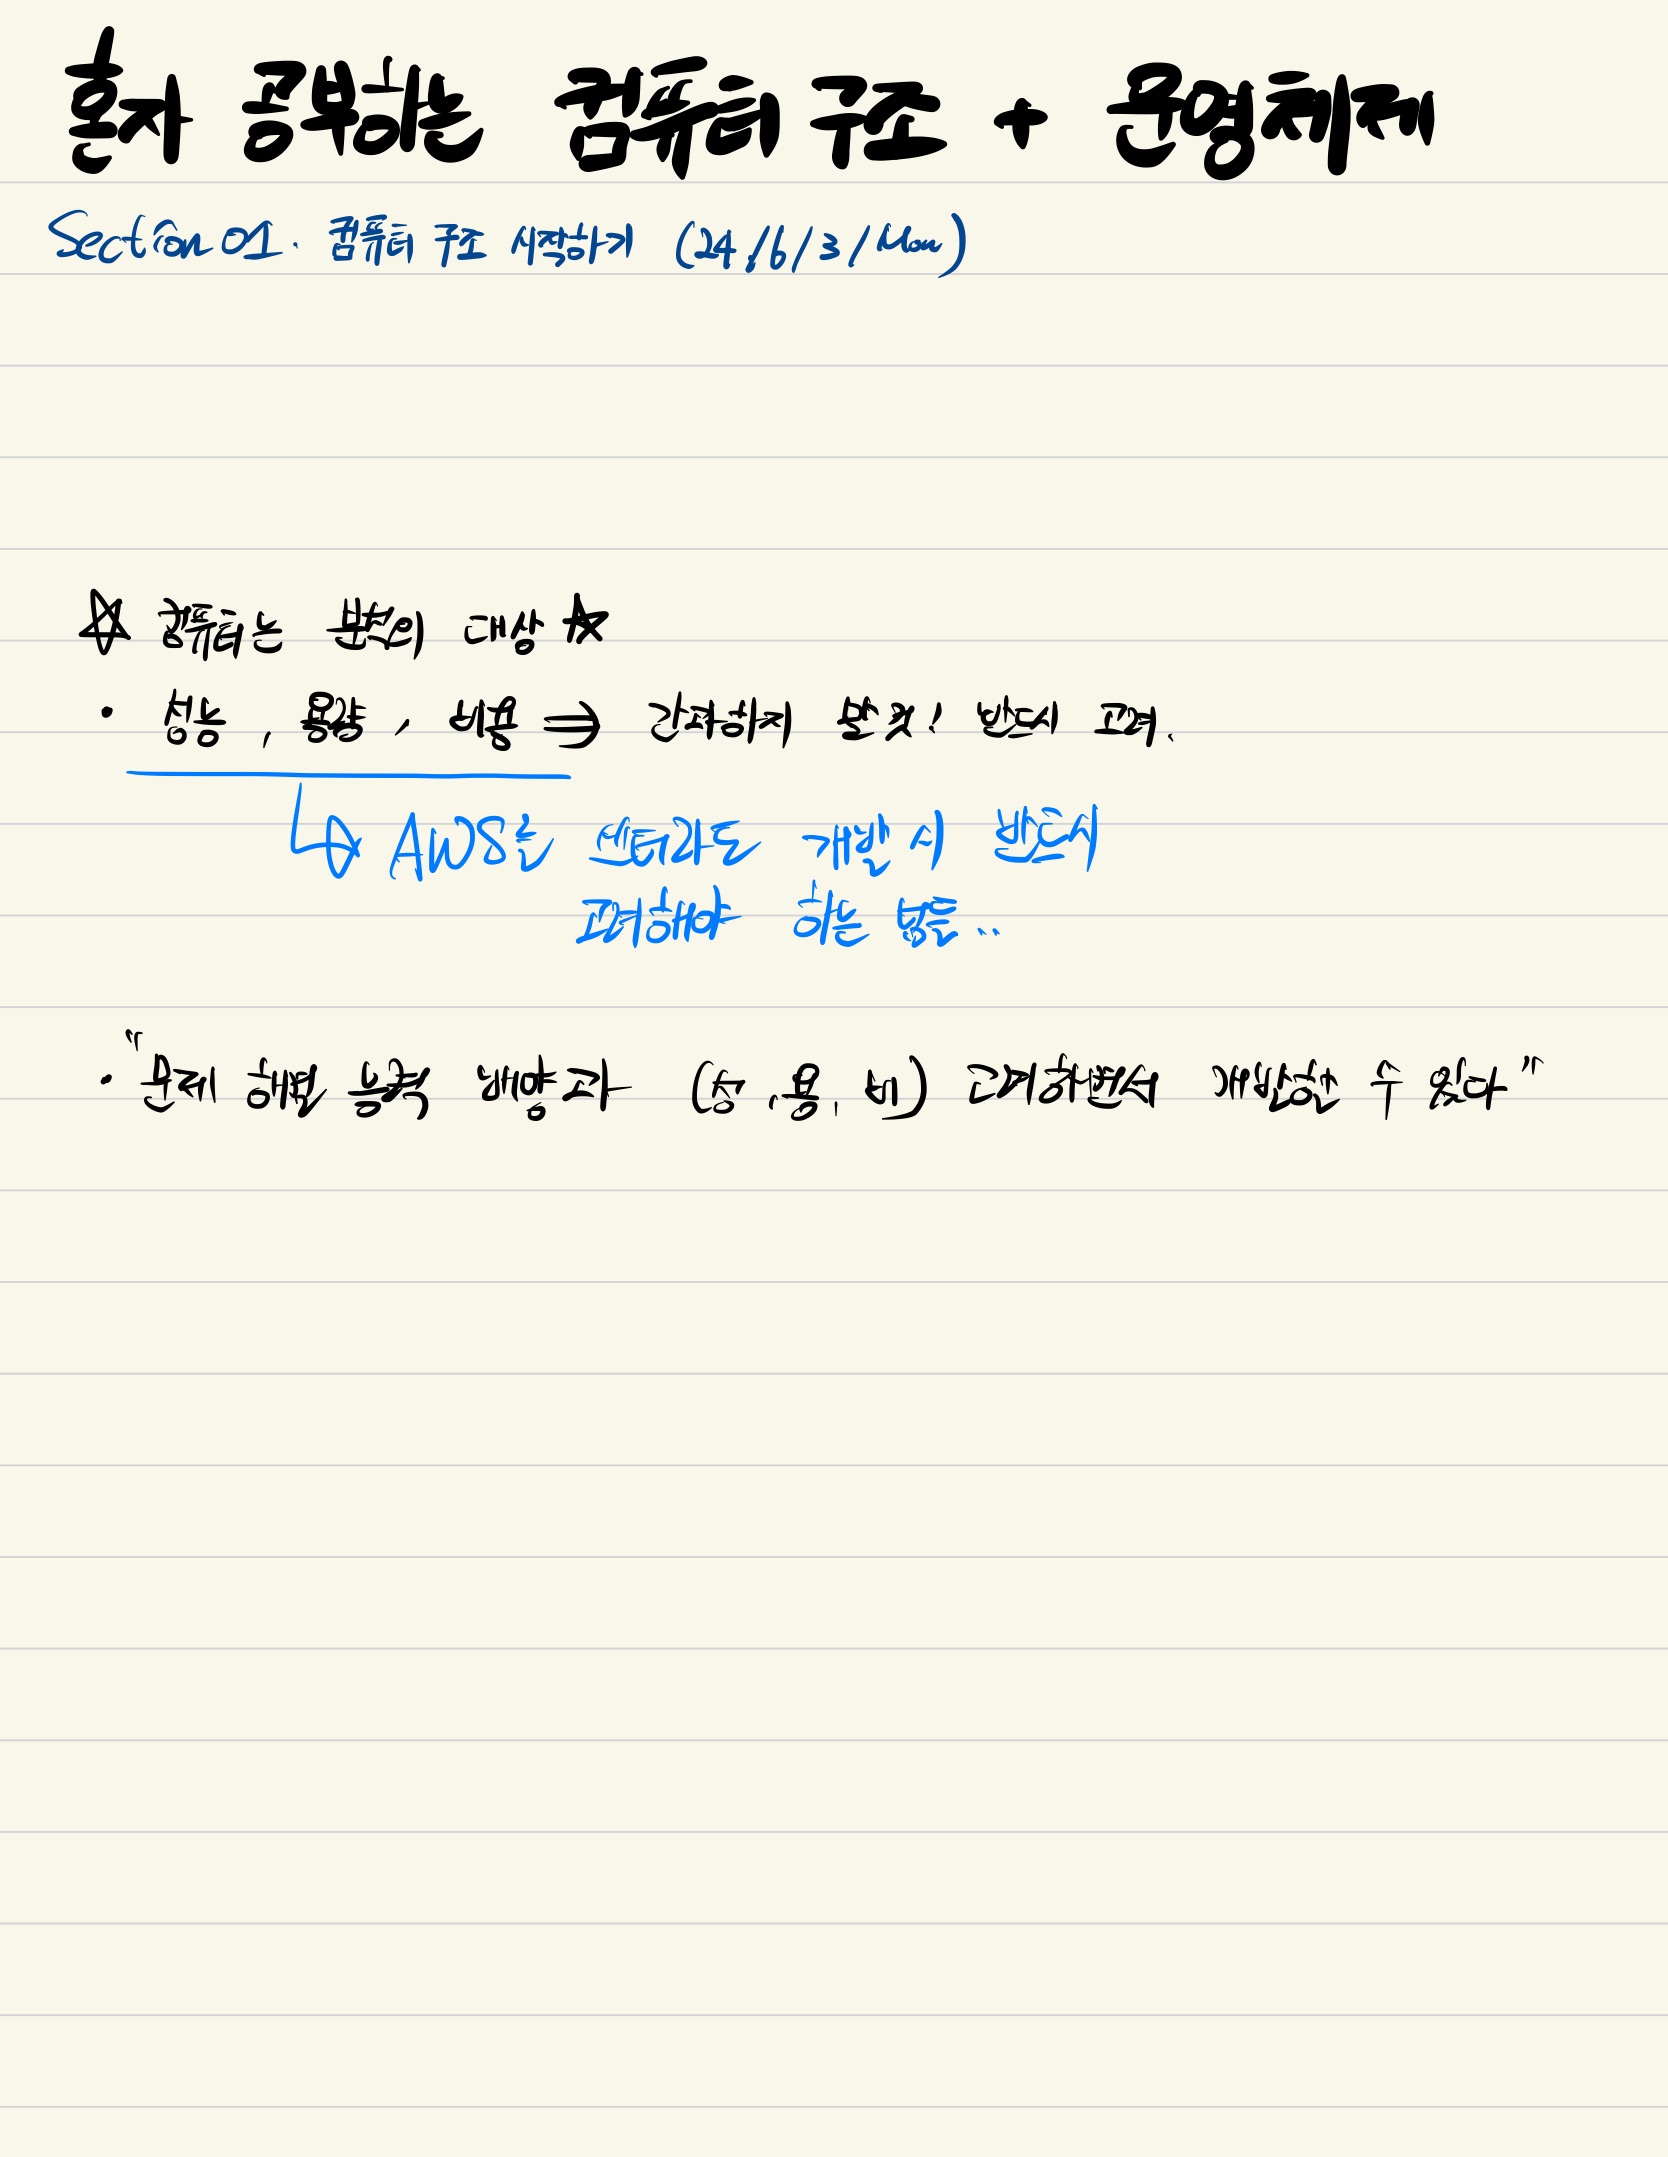 혼자 공부하는 컴퓨터 구조 + 운영체제
Section 01. 컴퓨터 구조 시작하기 (24/6/3/Mon)
☆ 컴퓨터는 분석의 대상 ☆
• 성능, 용량, 비용 ⇒ 간과하지 말 것! 반드시 고려.
↳ AWS를 쓰더라도 개발 시 반드시
고려해야 하는 놈들..
• "문제 해결 능력 배양과 (성, 용, 비) 고려하면서 개발할 수 있다"